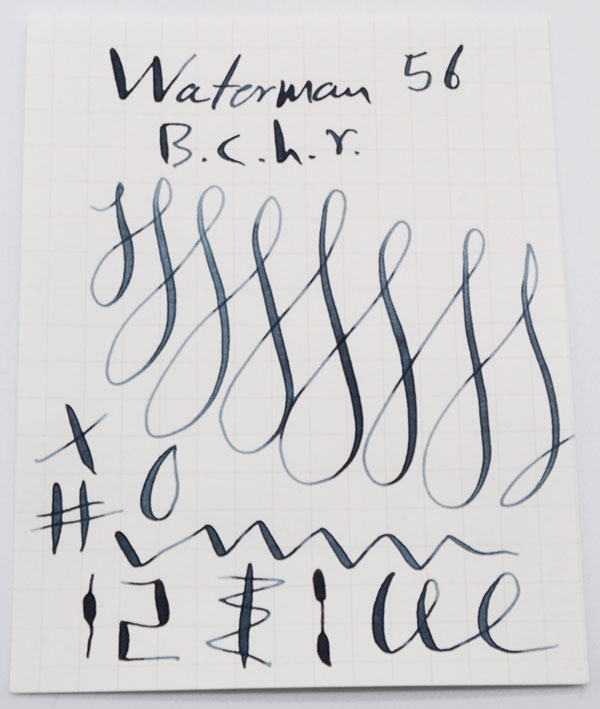 Waterman 56
B.C.h.r.